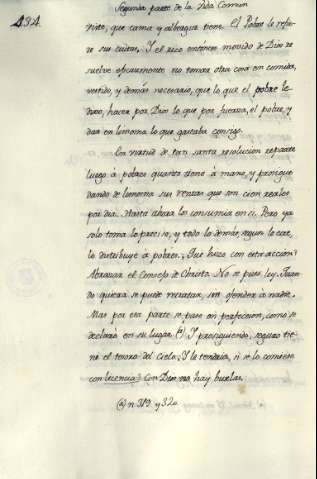 434.
Segunda parte de la Vida Comun
viste, que cama y albergue tiene. El Pobre le refie-
re sus cuitas. Y el rico entonces movido de Dios re
suelve eficazmente no tomar otra cosa en comida,
vestido, y demás necesario, que lo que el pobre le
dixo, hacer por Dios lo que por fuerza, el pobre, y
dar en limosna lo que gastaba consigo.
En virtud de tan santa resolucion reparte
luego à pobres quanto tiene à mano, y prosigue
dando de limosna sus rentas que son cien reales
por dia. Hasta ahora los consumia en si. Pero ya
solo toma lo preciso, y todo lo demás, segun le cae,
lo distribuye à pobres. Que hizo con esta accion?
Abrazar el Consejo de Christo. No se puso ley. Quan
do quiera se puede retratar, sin ofender à nadie.
Mas por esa parte se puso en perfeccion, como se
declarò en su lugar (a) Y prosiguiendo, seguro tie-
ne el tesoro del cielo. Y le tendria, si se lo comiese
con licencia? Con Dios no hay burlas.
(a) n. 319 y 320